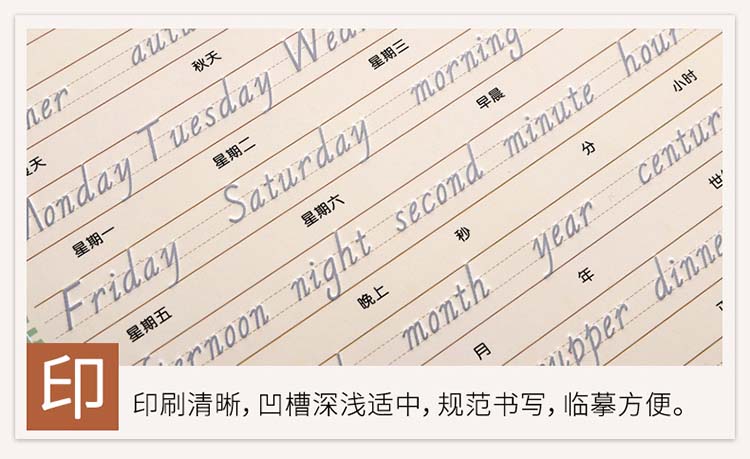 秋天
Monday Tuesday
星期一 星期二 星期三
Friday Saturday morning
星期五 星期六 早晨
night second minute hour
晚上 秒 分 小时
month year
月 年
印
印刷清晰，凹槽深浅适中，规范书写，临摹方便。